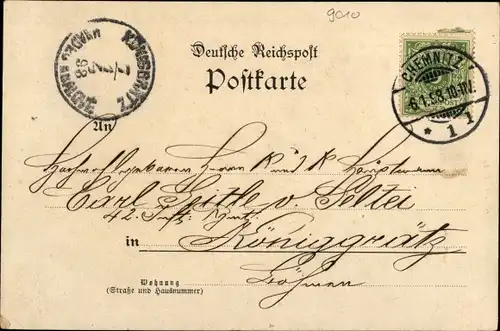 9010
Deutsche Reichspost
Postkarte
CHEMNITZ
6.1.98.10-11V.
* 1 1
KÖNIGGRÄTZ
7/1
98
An
Hochwohlgeboren Herrn K und K Hauptmann
Carl v.
42. Inft.
in Königgrätz
Wohnung
(Straße und Hausnummer)
Böhmen